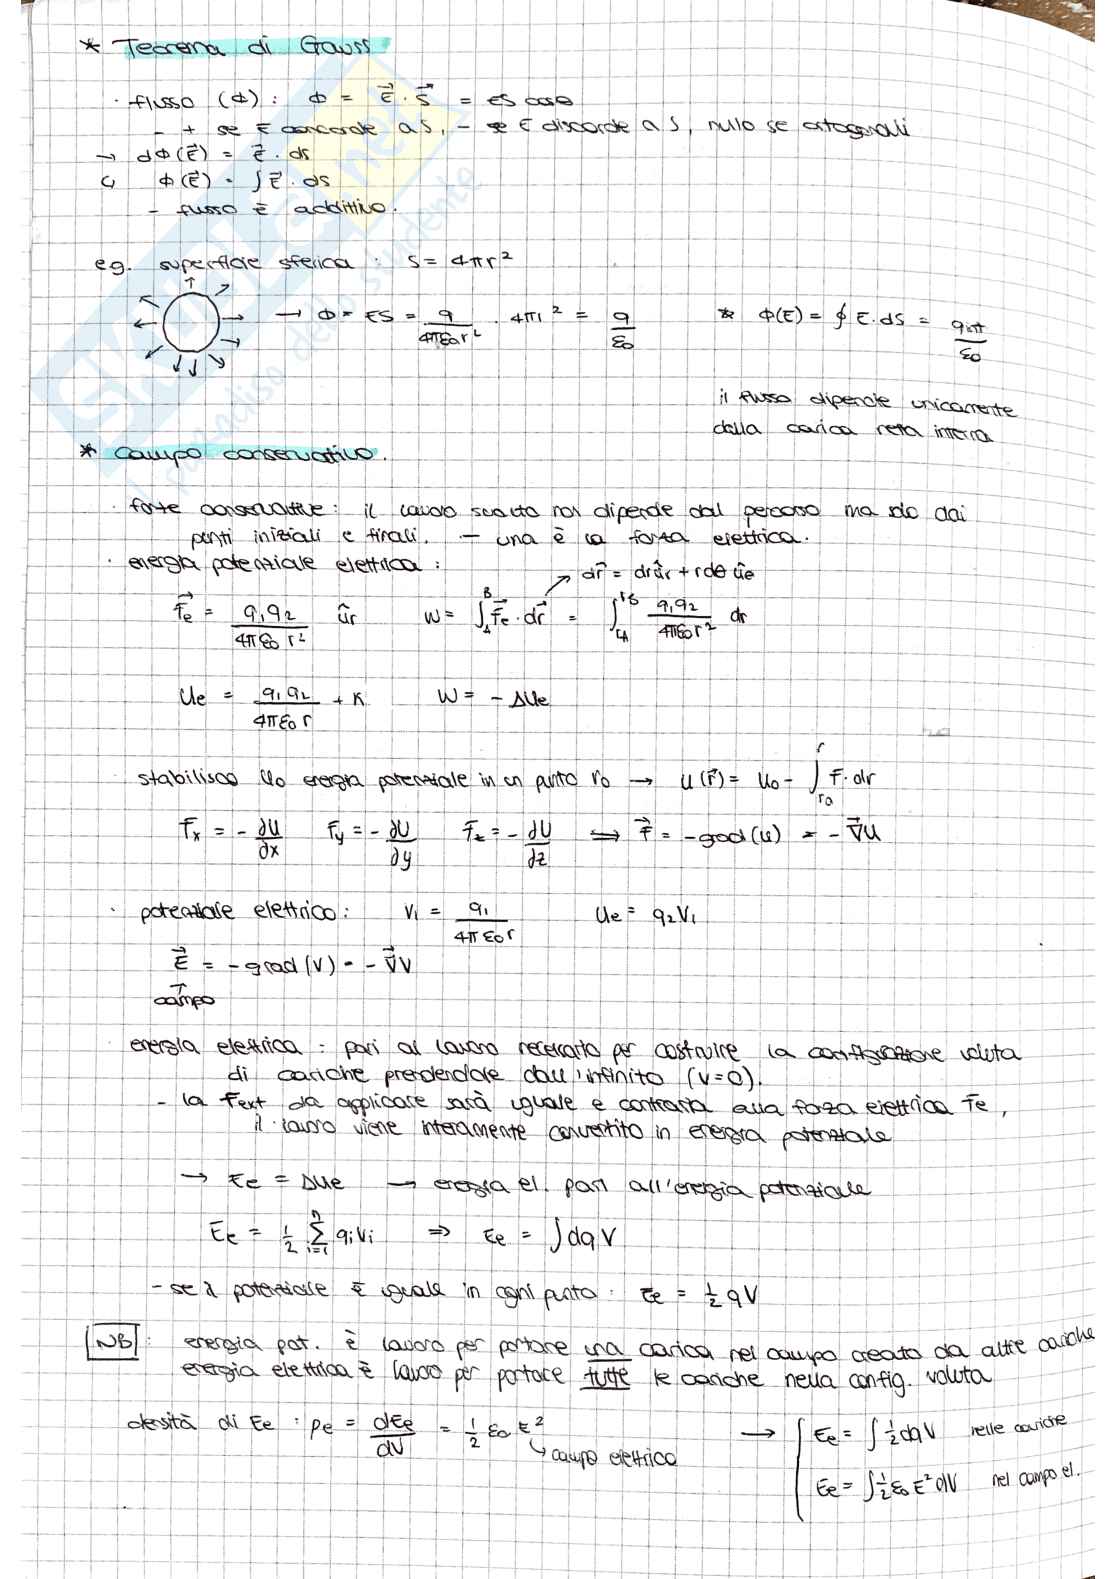 * Teorema di Gauss
· flusso (Φ) : Φ = E⃗ · S⃗ = ES cosθ
- + se E concorde a S, - se E discorde a S, nullo se ortogonali
→ dΦ(E⃗) = E⃗ · ds
↳ Φ(E⃗) = ∫ E⃗ · ds
- flusso è additivo.
e.g. superficie sferica : S = 4πr²
→ Φ = ES = q/(4πε₀r²) · 4πr² = q/ε₀
* Φ(E) = ∮ E · dS = qint/ε₀
il flusso dipende unicamente
dalla carica netta interna
* Campo conservativo.
· forze conservative : il lavoro svolto non dipende dal percorso ma solo dai
punti iniziali e finali. — una è la forza elettrica.
· energia potenziale elettrica :
→ dr⃗ = dr ûr + rdθ ûθ
F⃗e = q₁q₂/(4πε₀r²) ûr W = ∫_A^B F⃗e · dr⃗ = ∫_rA^rB q₁q₂/(4πε₀r²) dr
Ue = q₁q₂/(4πε₀r) + K W = - ΔUe
stabilisco U₀ energia potenziale in un punto r₀ → U(r⃗) = U₀ - ∫_r₀^r F · dr
Fx = - ∂U/∂x Fy = - ∂U/∂y Fz = - ∂U/∂z ⟺ F⃗ = -grad(U) = - ∇⃗U
· potenziale elettrico : V₁ = q₁/(4πε₀r) Ue = q₂V₁
E⃗ = -grad(V) = - ∇⃗V
↑
campo
· energia elettrica : pari al lavoro necessario per costruire la configurazione voluta
di cariche prendendole dall'infinito (V=0).
- la Fext da applicare sarà uguale e contraria alla forza elettrica Fe,
il lavoro viene interamente convertito in energia potenziale
→ Ee = ΔUe → energia el. pari all'energia potenziale
Ee = 1/2 Σ_{i=1}^n qiVi ⇒ Ee = ∫ dq V
- se il potenziale è uguale in ogni punto : Ee = 1/2 qV
NB : energia pot. è lavoro per portare una carica nel campo creato da altre cariche
energia elettrica è lavoro per portare tutte le cariche nella config. voluta
densità di Ee : ρe = dEe/dV = 1/2 ε₀ E²
↳ campo elettrico
→ { Ee = ∫ 1/2 dq V nelle cariche
Ee = ∫ 1/2 ε₀ E² dV nel campo el.
Skuola.net
il paradiso dello studente